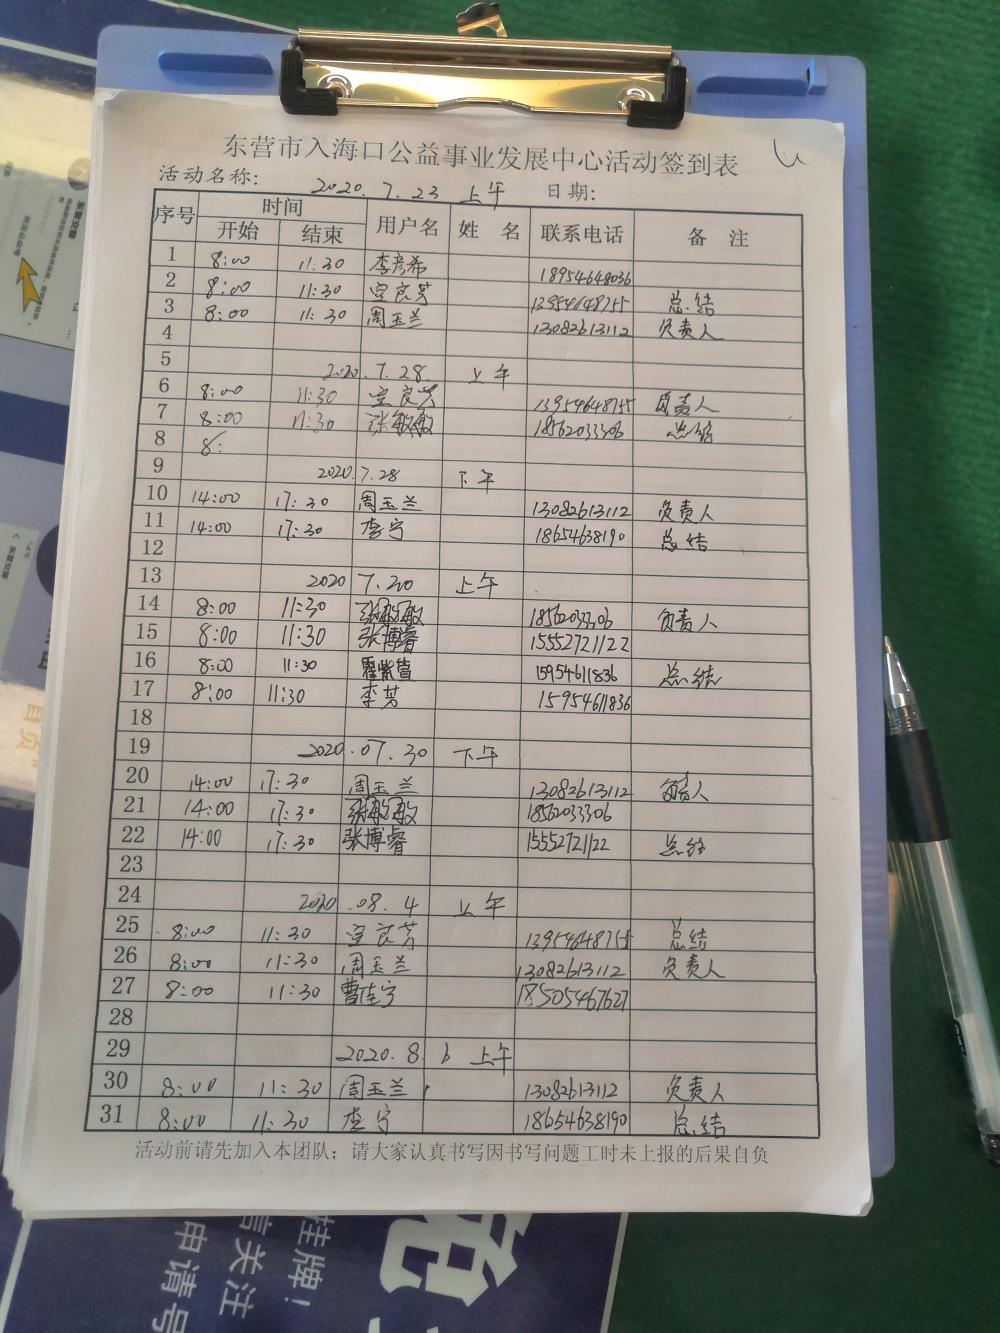 东营市入海口公益事业发展中心活动签到表
活动名称: 2020.7.23 上午 日期:
序号 时间 用户名 姓 名 联系电话 备 注
开始 结束
1 8:00 11:30 李彦希 18954648036
2 8:00 11:30 宝良芳 13954648755 总结
3 8:00 11:30 周玉兰 13082613112 负责人
4
5 2020.7.28 上午
6 8:00 11:30 宝良芳 13954648755 负责人
7 8:00 11:30 张敏敏 18562033306 总结
8 8:
9 2020.7.28 下午
10 14:00 17:30 周玉兰 13082613112 负责人
11 14:00 17:30 李宁 18654638190 总结
12
13 2020 7.30 上午
14 8:00 11:30 张敏敏 18562033306 负责人
15 8:00 11:30 张博睿 15552721122
16 8:00 11:30 15954611836 总结
17 8:00 11:30 李芳 15954611836
18
19 2020.07.30 下午
20 14:00 17:30 周玉兰 13082613112 负责人
21 14:00 17:30 张敏敏 18562033306
22 14:00 17:30 张博睿 15552721122 总结
23
24 2020.08.4 上午
25 8:00 11:30 宝良芳 13954648755 总结
26 8:00 11:30 周玉兰 13082613112 负责人
27 8:00 11:30 曹佳宁 18505467627
28
29 2020.8 6 上午
30 8:00 11:30 周玉兰 13082613112 负责人
31 8:00 11:30 李宁 18654638190 总结
活动前请先加入本团队;请大家认真书写因书写问题工时未上报的后果自负
挂牌!
信关注
申请号
免